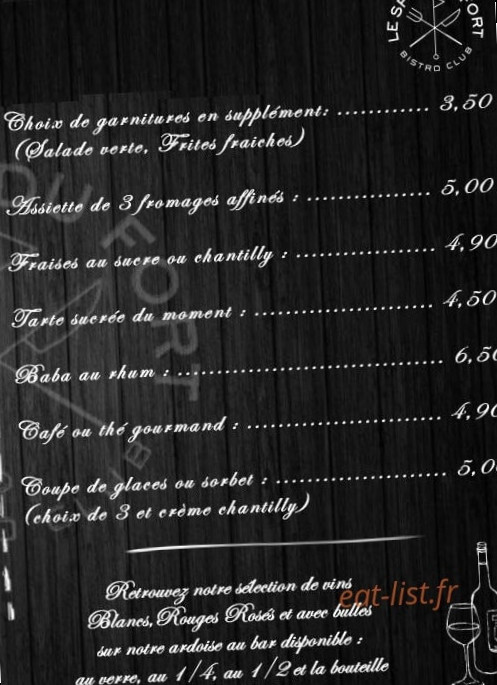 LE SA
FORT
BISTRO CLUB
Choix de garnitures en supplément: ............ 3,50
(Salade verte, Frites fraiches)
Assiette de 3 fromages affinés : ................ 5,00
Fraises au sucre ou chantilly : .................. 4,90
Tarte sucrée du moment : ....................... 4,50
Baba au rhum : .................................. 6,50
Café ou thé gourmand : ......................... 4,90
Coupe de glaces ou sorbet : ..................... 5,0
(choix de 3 et crème chantilly)
Retrouvez notre sélection de vins
Blancs, Rouges Rosés et avec bulles
sur notre ardoise au bar disponible :
au verre, au 1/4, au 1/2 et la bouteille
eat-list.fr
DU FORT